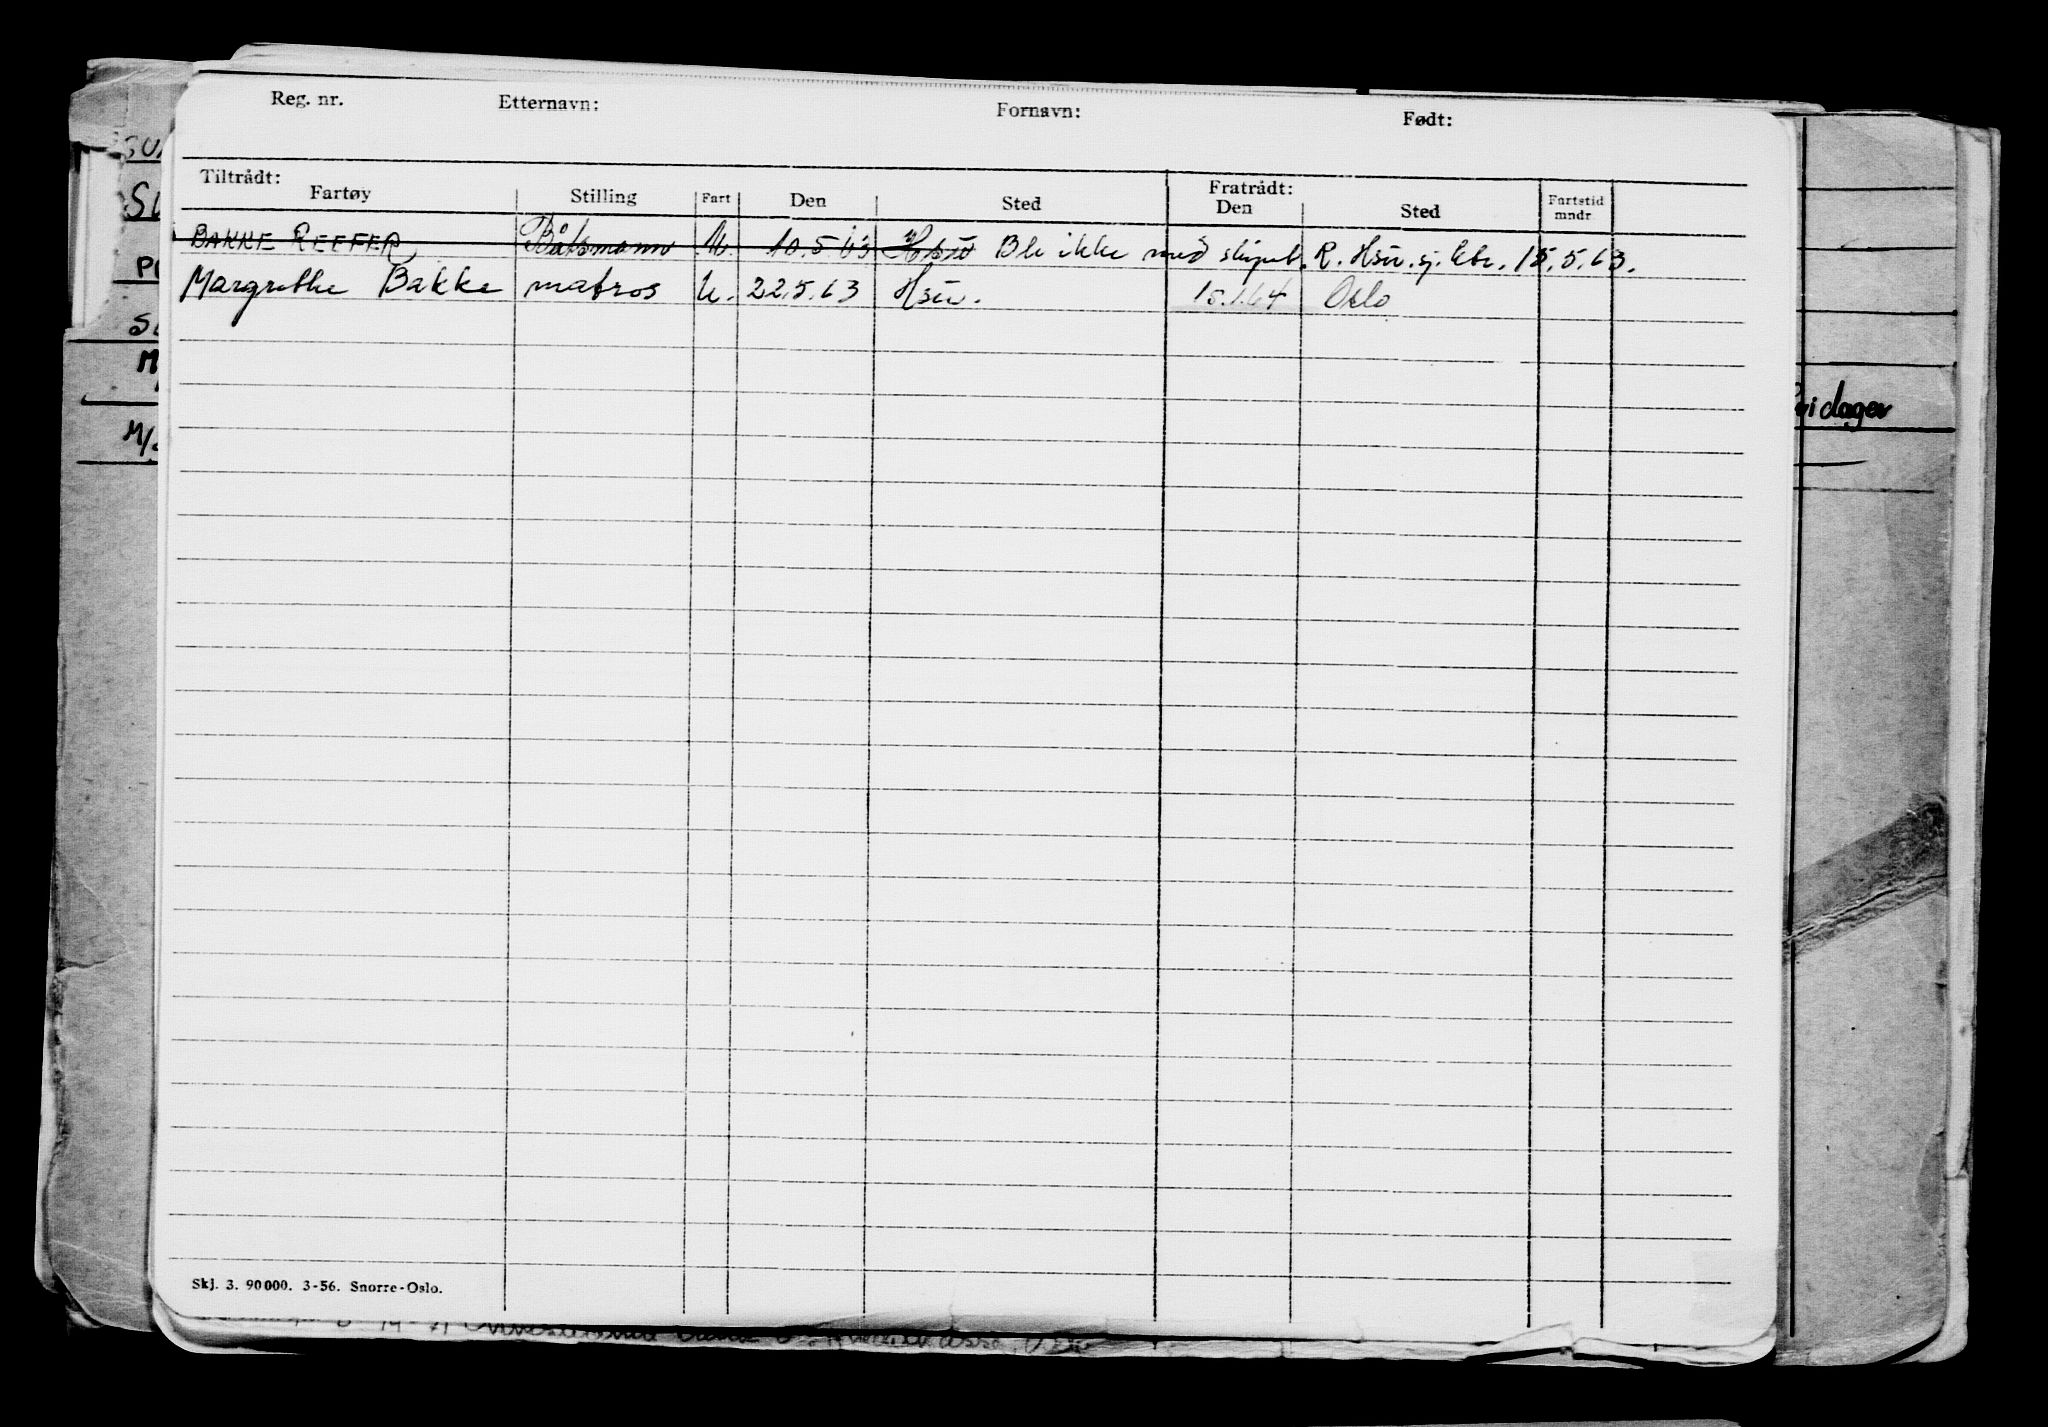 Reg. nr. Etternavn: Fornavn: Født:
Tiltrådt: Fratrådt:
Fartøy Stilling Fart Den Sted Den Sted Fartstid mndr
BAKKE REEFER Båtsmann U. 10.5.63 Hsu Ble ikke med skipet. R. Hsu. sj. ktr. 15.5.63.
Margrethe Bakke matros U. 22.5.63 Hsu. 15.1.64 Oslo
dager
Skj. 3. 90000. 3-56. Snorre-Oslo.